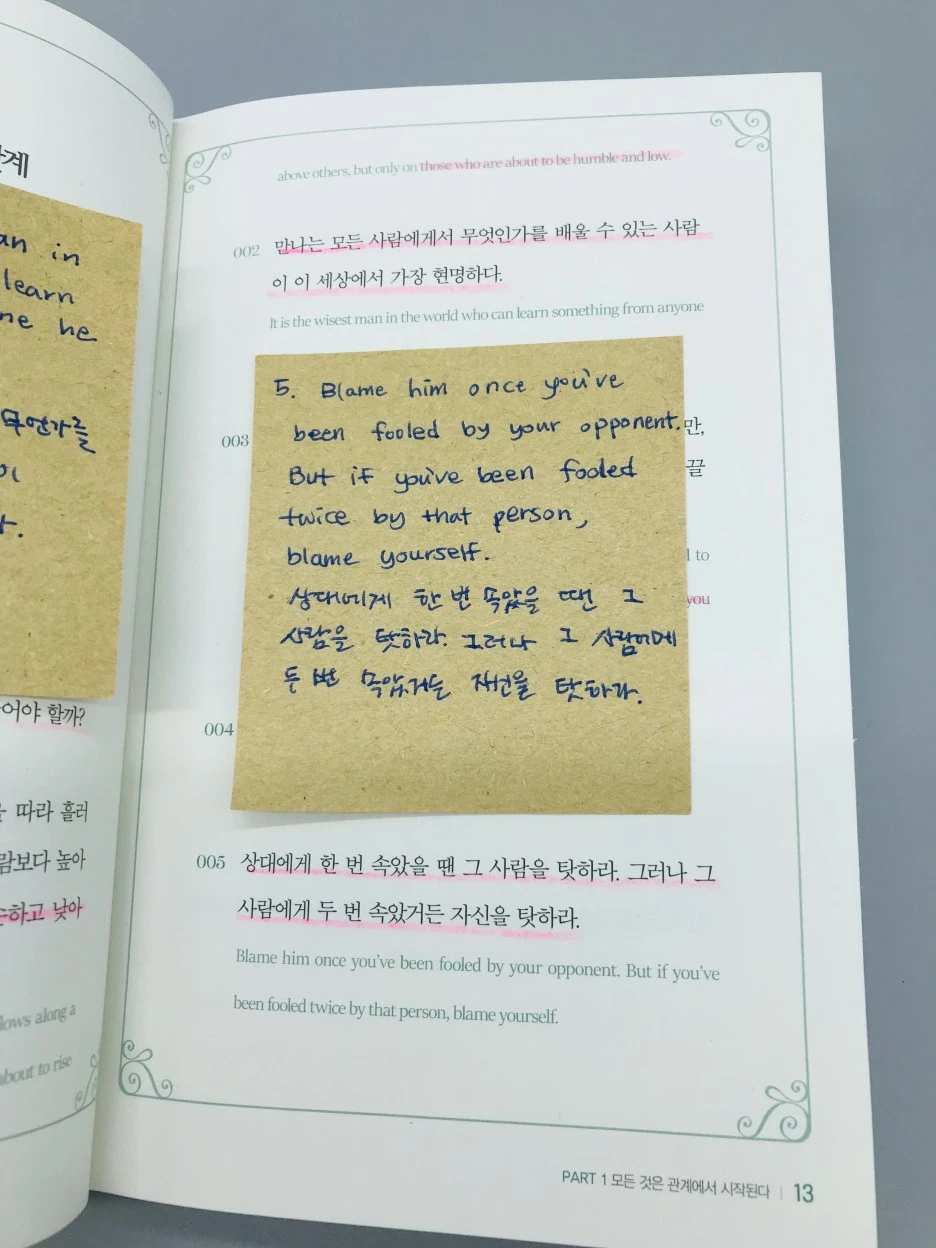 계
an in
learn
ne he
무언가를
다.
어야 할까?
따라 흘러
람보다 높아
손하고 낮아
lows along a
about to rise
above others, but only on those who are about to be humble and low.
002 만나는 모든 사람에게서 무엇인가를 배울 수 있는 사람
이 이 세상에서 가장 현명하다.
It is the wisest man in the world who can learn something from anyone
003
만,
끌
l to
you
5. Blame him once you've
been fooled by your opponent.
But if you've been fooled
twice by that person,
blame yourself.
상대에게 한 번 속았을 땐 그
사람을 탓하라. 그러나 그 사람에게
두 번 속았거든 자신을 탓하라.
004
005 상대에게 한 번 속았을 땐 그 사람을 탓하라. 그러나 그
사람에게 두 번 속았거든 자신을 탓하라.
Blame him once you've been fooled by your opponent. But if you've
been fooled twice by that person, blame yourself.
PART 1 모든 것은 관계에서 시작된다 | 13